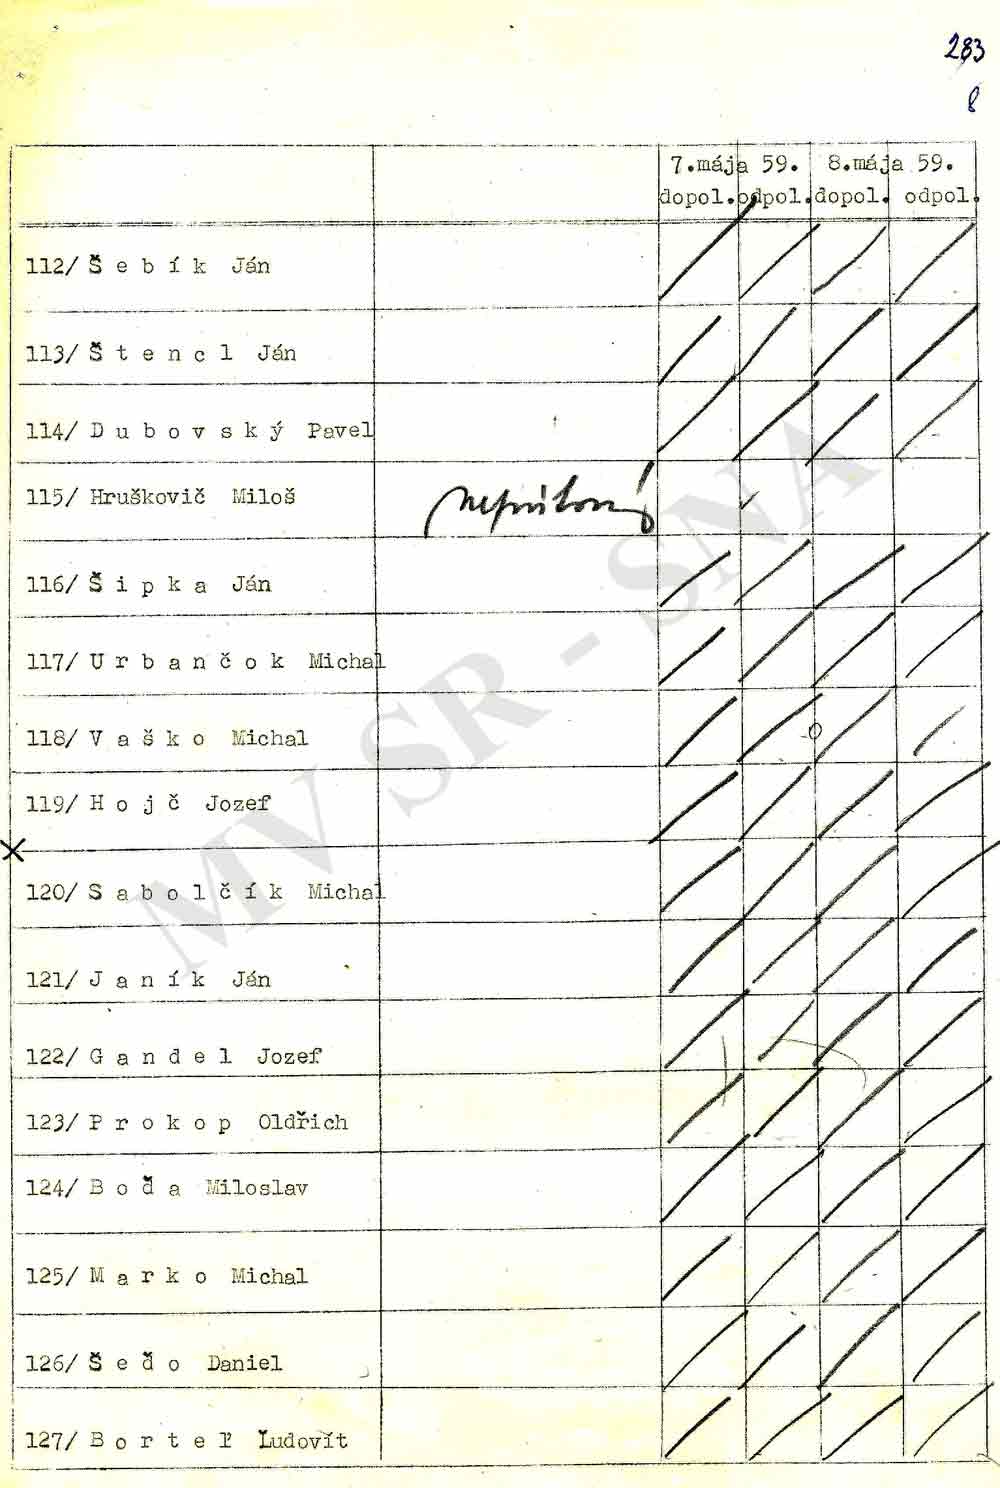 283
8
7.mája 59. 8.mája 59.
dopol. odpol. dopol. odpol.
112/ Š e b í k Ján
113/ Š t e n c l Ján
114/ D u b o v s k ý Pavel
115/ Hruškovič Miloš
116/ Š i p k a Ján
117/ U r b a n č o k Michal
118/ V a š k o Michal
119/ H o j č Jozef
120/ S a b o l č í k Michal
121/ J a n í k Ján
122/ G a n d e l Jozef
123/ P r o k o p Oldřich
124/ B o ď a Miloslav
125/ M a r k o Michal
126/ Š e ď o Daniel
127/ B o r t e ľ Ľudovít
MV SR - SNA